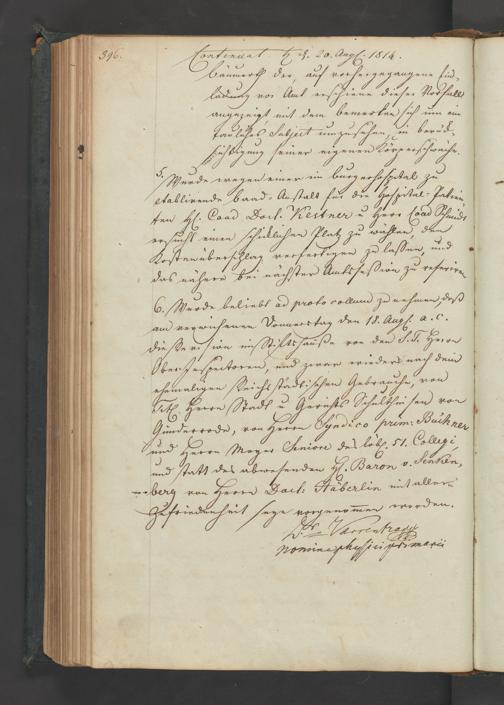 396.
Continuat. d. d. 20. Augt. 1814.
bäumerth der, auf vorhergegangene Ein-
ladung vor Amt erschiene dieser Vorfall
angezeigt, mit dem bemerken sich um ein
taugliches Subject umzusehen, in berück-
sichtigung seiner eigenen Körperschwäche.
5. Wurde wegen einer im Burgerhospital zu
etablirende Baad-Anstalt für die Hospital-Patien-
ten H. Coad Doct. Kestner u Herr Coad Schmidt
ersucht einen schicklichen Platz zu wählen, den
Kostenüberschlag verfertigen zu lassen, und
das nähere bei nächster Amtssession zu referiren
6. Wurde beliebt ad protocollum zu nehmen, daß
am verwichenen Donnerstag den 18. Augt. a. c.
die Revision im Stiftshauße von den S. T. Herrn
Oberinspectoren, und zwar wieder nach dem
ehemaligen Reichsstädtischen Gebrauche, von
Herrn Stadt u Gerichts Schultheisen von
Günderrode, von Herrn Syndico prim: Büchner
und Herrn Meyer Seniore des löbl. 51. Collegi,
und statt des abwesenden H. Baron v. Senken-
berg von Herrn Doct: Häberlin mit aller
Zufriedenheit seye vorgenommen worden.
Dr Varrentrapp
nomine physici primarii